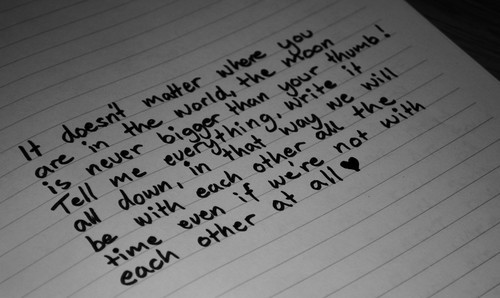 It doesn't matter where you
are in the world, the moon
is never bigger than your thumb!
Tell me everything, write it
all down, in that way we will
be with each other all the
time even if we're not with
each other at all ♥